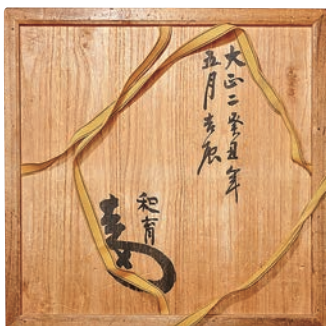 大正二癸丑年
五月吉辰
和育